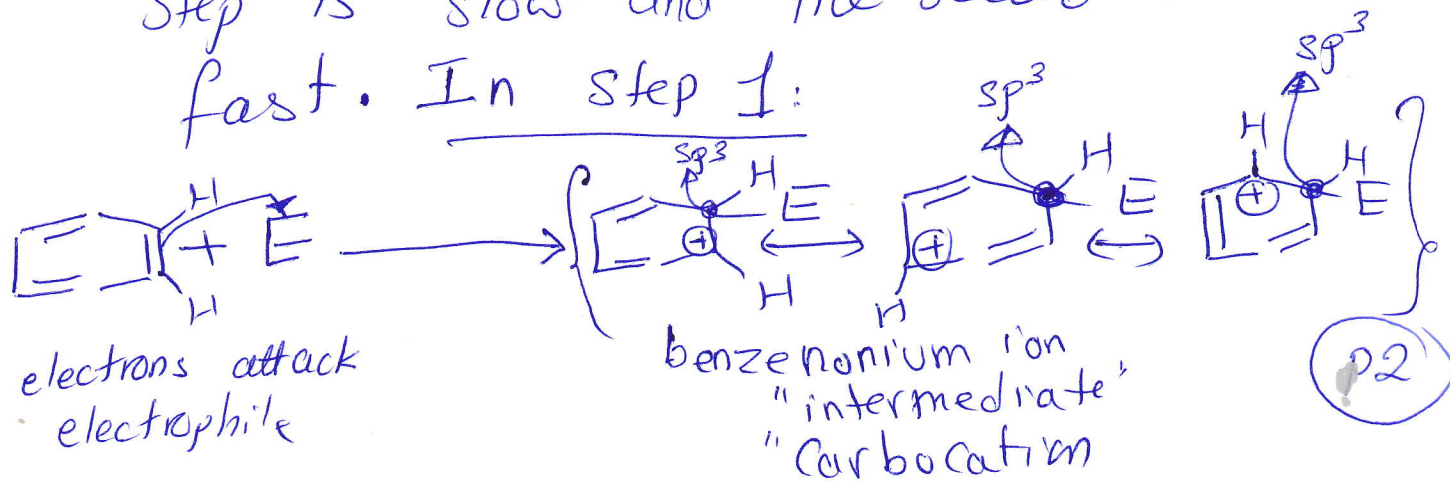 Step is slow and the
fast. In step 1:
sp³ sp³ sp³
H H H H H
+ E E E E
⊕ ⊕ ⊕
H H H
electrons attack
electrophile
benzenonium ion
"intermediate"
"Carbocation
p2